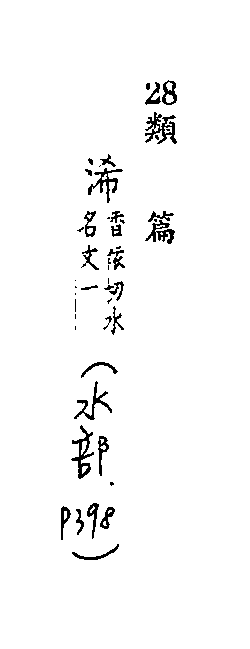 28類篇
浠香依切水名文一
(水部.P398)